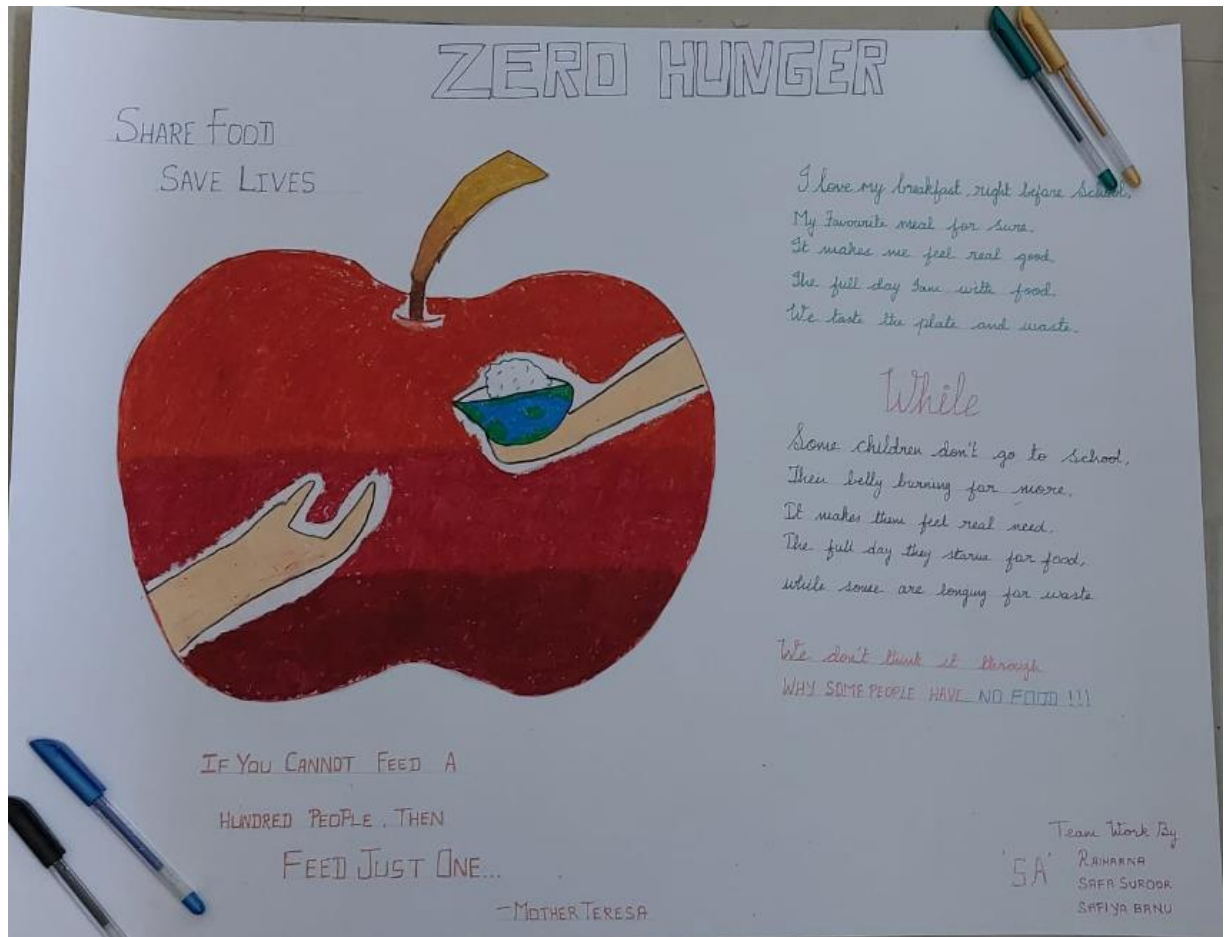 ZERO HUNGER
SHARE FOOD
SAVE LIVES
I love my breakfast, right before School,
My Favourite meal for sure.
It makes me feel real good.
The full day I am with food.
We taste the plate and waste.
While
Some children don't go to School,
Their belly burning for more.
It makes them feel real need.
The full day they starve for food,
while some are longing for waste
We don't think it through
WHY SOME PEOPLE HAVE NO FOOD !!!
IF YOU CANNOT FEED A
HUNDRED PEOPLE, THEN
FEED JUST ONE...
-MOTHER TERESA
Team Work By
'SA' RAIHANA
SAFA SUROOR
SAFIYA BANU